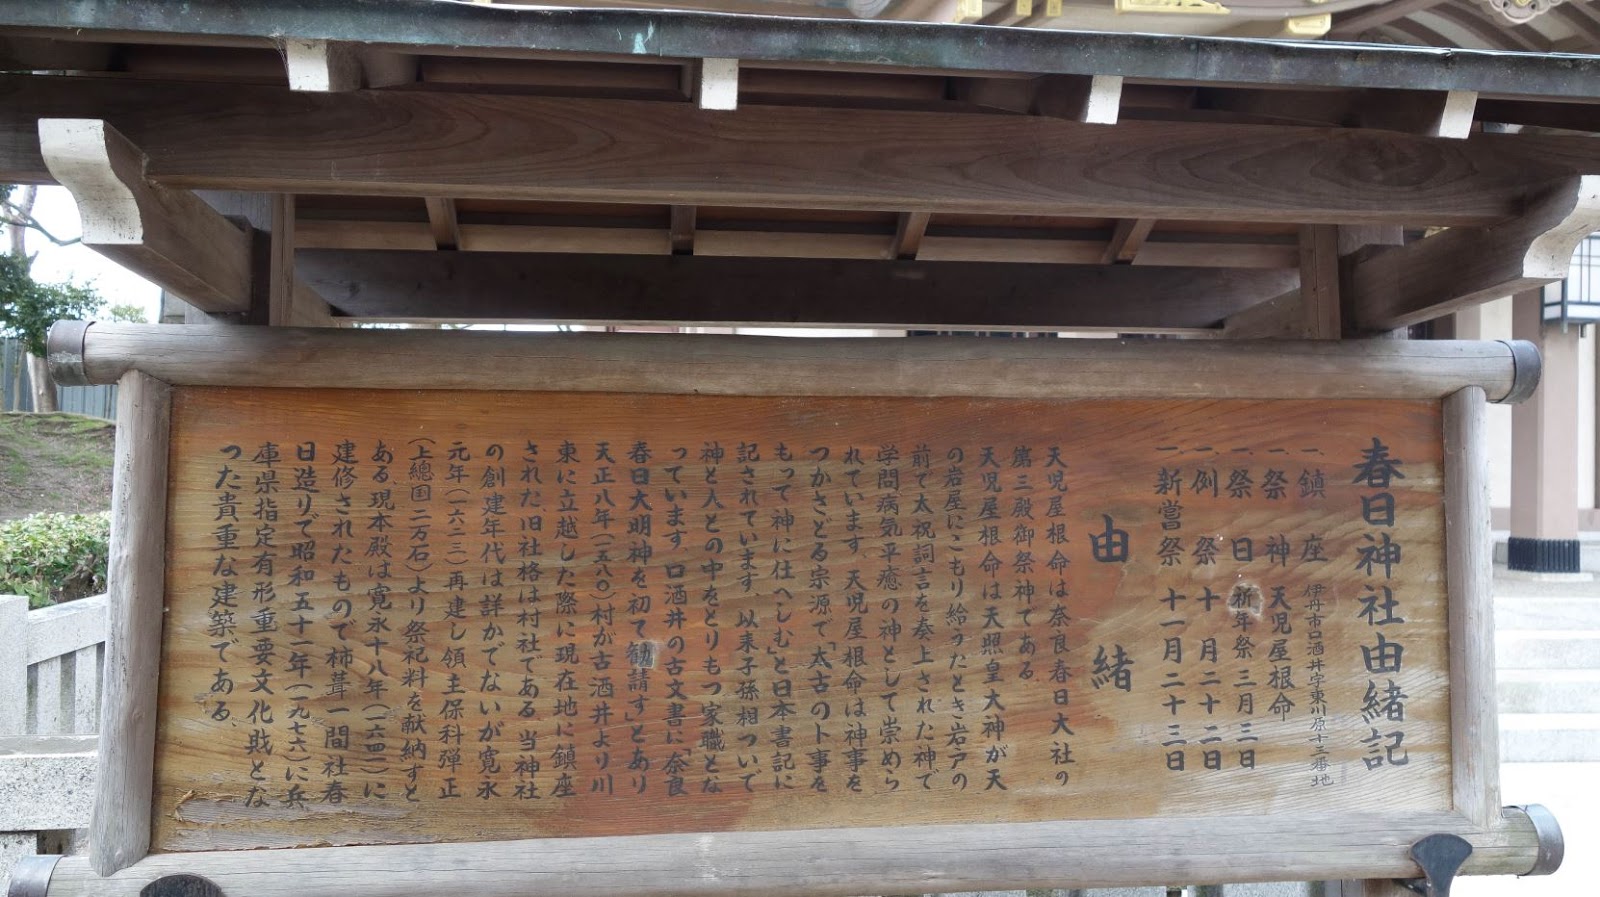 春日神社由緒記
一、鎮座 伊丹市口酒井字東川原十三番地
一、祭神 天児屋根命
一、祭日 祈年祭 三月三日
一、例祭 十月二十二日
一、新嘗祭 十一月二十三日
由緒
天児屋根命は奈良春日大社の
第三殿御祭神である、
天児屋根命は天照皇大神が天
の岩屋にこもり給うたとき岩戸の
前で太祝詞言を奏上された神で
学問病気平癒の神として崇めら
れています、天児屋根命は神事を
つかさどる宗源で「太古の卜事を
もって神に仕へしむ」と日本書記に
記されています、以来子孫相ついで
神と人との中をとりもつ家職とな
っています、口酒井の古文書に「奈良
春日大明神を初て勧請す」とあり
天正八年(一五八〇)村が古酒井より川
東に立越した際に現在地に鎮座
された、旧社格は村社である 当神社
の創建年代は詳かでないが寛永
元年(一六二三)再建し領主保科弾正
(上總国二万石)より祭祀料を献納すと
ある、現本殿は寛永十八年(一六四一)に
建修されたもので柿葺一間社春
日造りで昭和五十一年(一九七六)に兵
庫県指定有形重要文化財とな
った貴重な建築である、